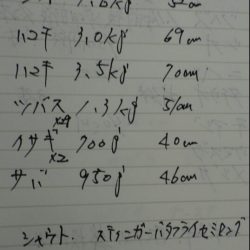 1.6kg 52cm
ハマチ 3.0kg 69cm
ハマチ 3.5kg 70cm
ツバス 1.3kg 51cm
×4
イサギ 700g 40cm
×2
サバ 950g 46cm
シャウト. スティンガーバタフライ